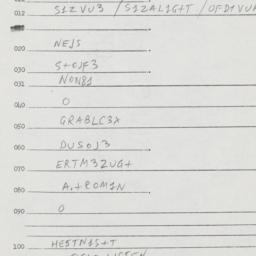 012 S1ZVU3 / S1ZAL1G+T / OFD1VU
020 NEJS
030 S+OJF3
031 NON81
040 O
050 GRABLC3X
060 DUSOJ3
070 ERTM3ZUG+
080 A.+ROM1N
090 O
100 HE5TN1S+T